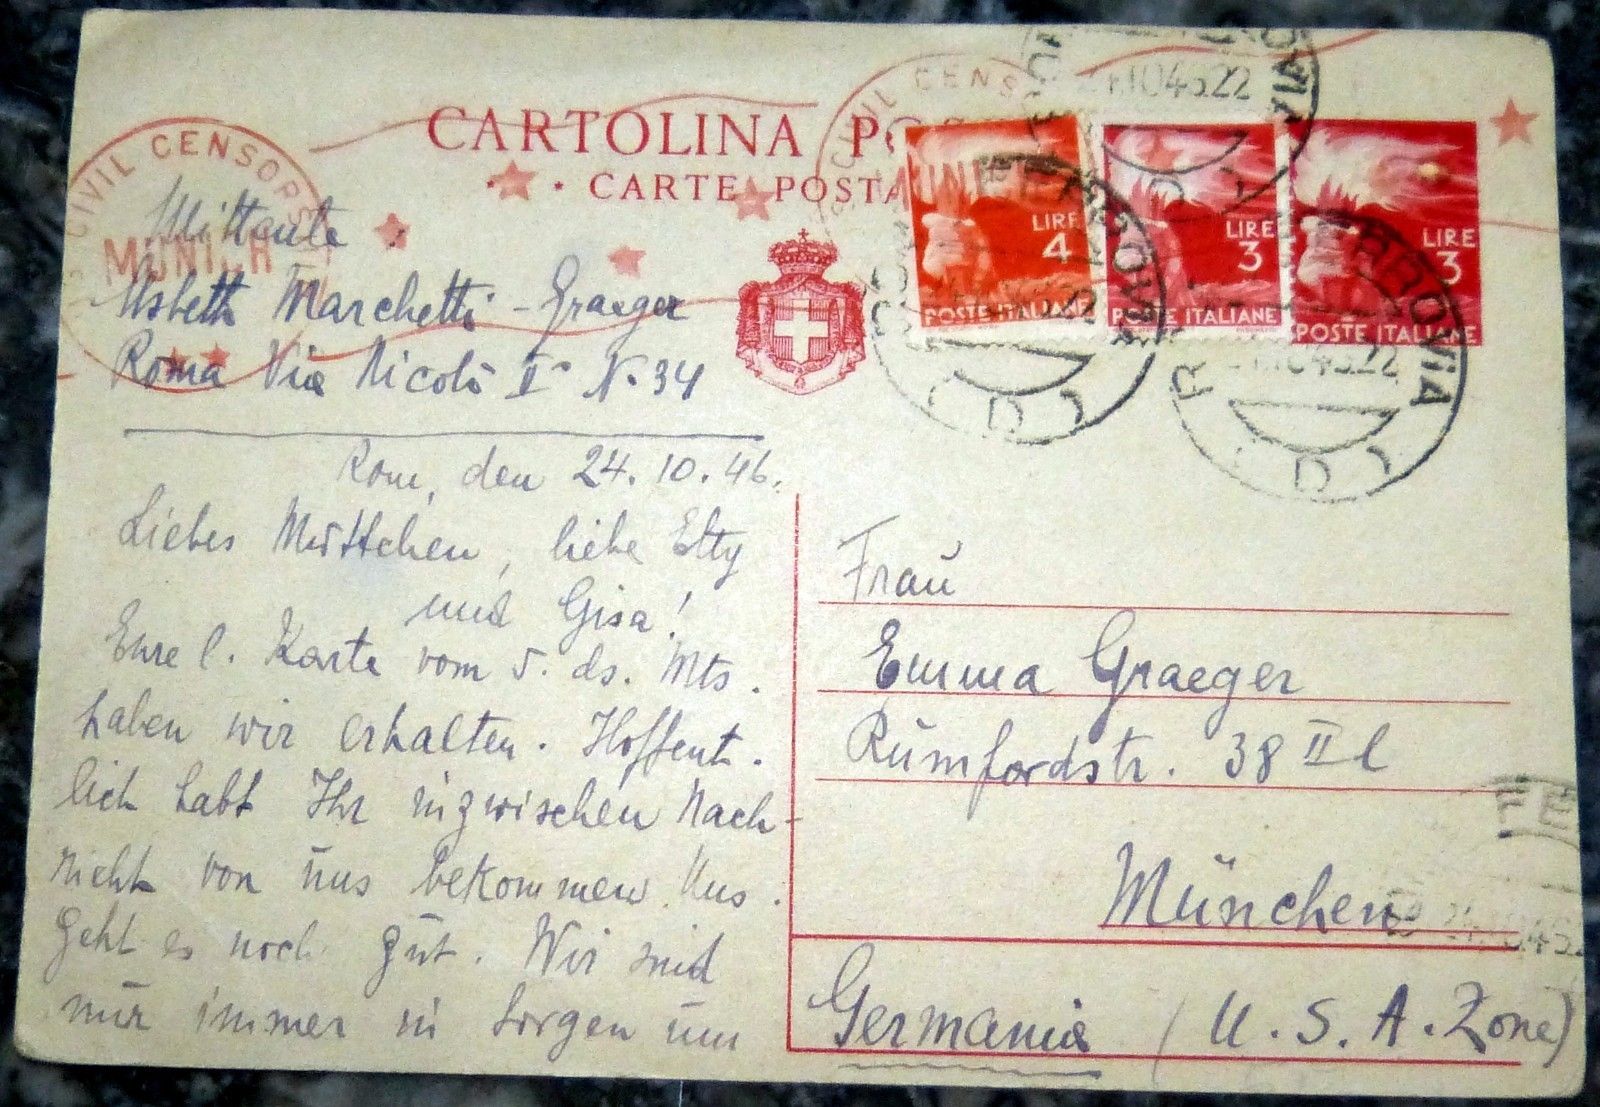 CARTOLINA PO
CARTE POSTA
CIVIL CENSORS
MUNICH
CIVIL CENS
LIRE
4
POSTE ITALIANE
LIRE
3
POSTE ITALIANE
LIRE
3
POSTE ITALIANE
FERROVIA
Mittente:
Marchetti-Graeger
Roma Via Nicolò V° N. 34
Rom, den 24.10.46.
Liebes Muttchen, liebe Elly
und Gisa!
Eure l. Karte vom 5. ds. Mts.
haben wir erhalten. Hoffent-
lich habt Ihr inzwischen Nach-
richt von uns bekommen. Uns
geht es noch gut. Wir sind
nur immer in Sorgen um
Frau
Emma Graeger
Rumfordstr. 38 II l
München
Germania (U.S.A. Zone)